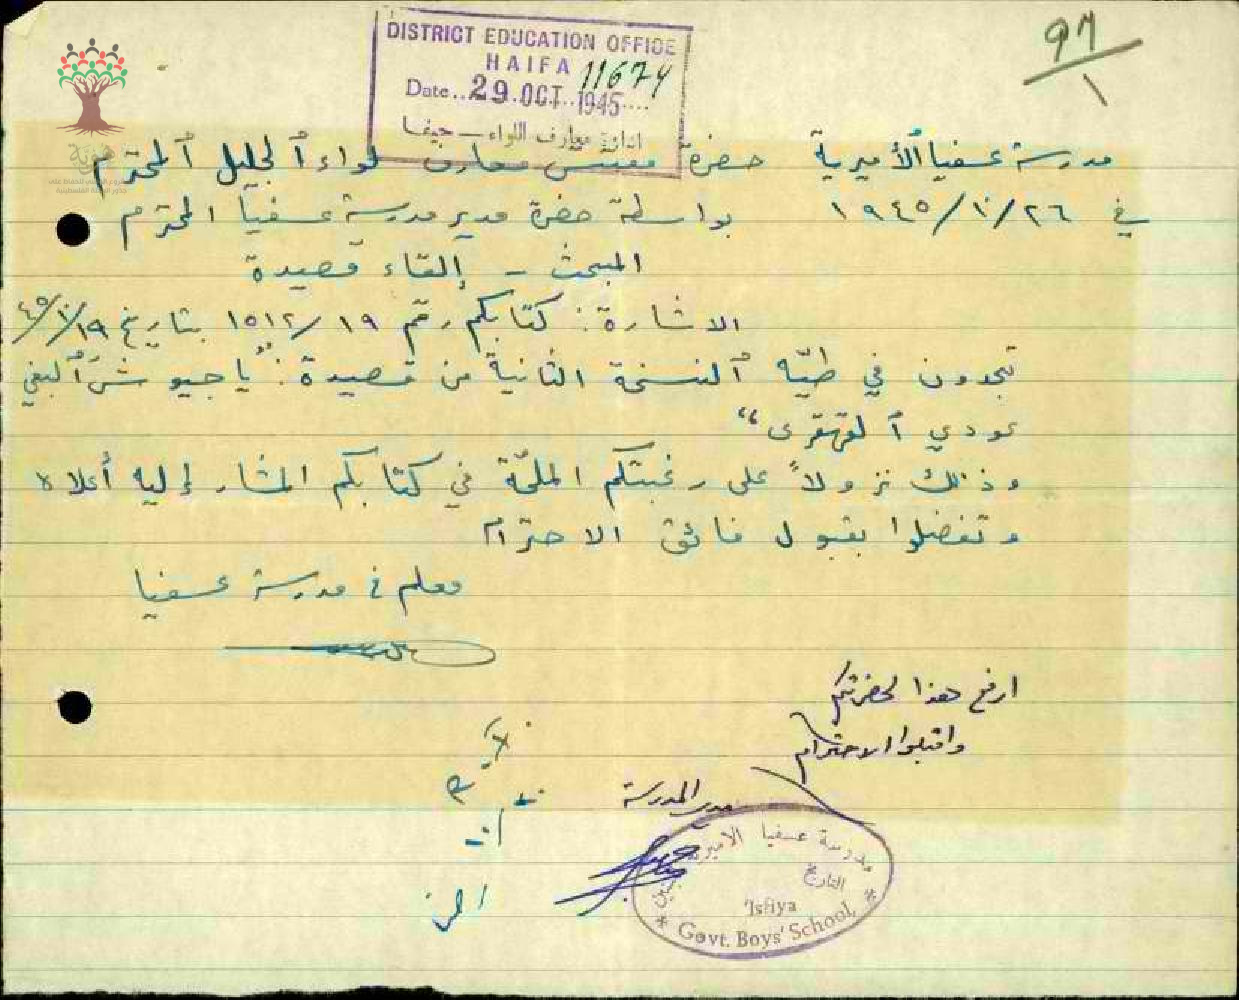 ٩٦
DISTRICT EDUCATION OFFICE
HAIFA 11674
Date.. 29.OCT..1945....
معارف اللواء - حيفا
مدرسة عسفيا الأميرية حضرة مفتش معارف لواء ٱلجليل ٱلمحترم
في ١٩٤٥/١٠/٢٦ بواسطة حضرة مدير مدرسة عسفيا المحترم
المبحث - إلقاء قصيدة
الاشارة: كتابكم رقم ١٥١٢/١٩ بتاريخ ٤٥/١٠/١٩
تجدون في طيّه ٱلنسخة الثانية من قصيدة: "يا جيوش ٱلبغي
عودي ٱلقهقرى"
وذلك نزولاً على رغبتكم الملحّة في كتابكم المشار إليه أعلاه
وتفضلوا بقبول فائق الاحترام
معلم في مدرسة عسفيا
ارفع هذا لحضرتكم
واقبلوا الاحترام
مدير المدرسة
مدرسة عسفيا الاميرية
التاريخ
'Isfiya
* Govt. Boys' School. *